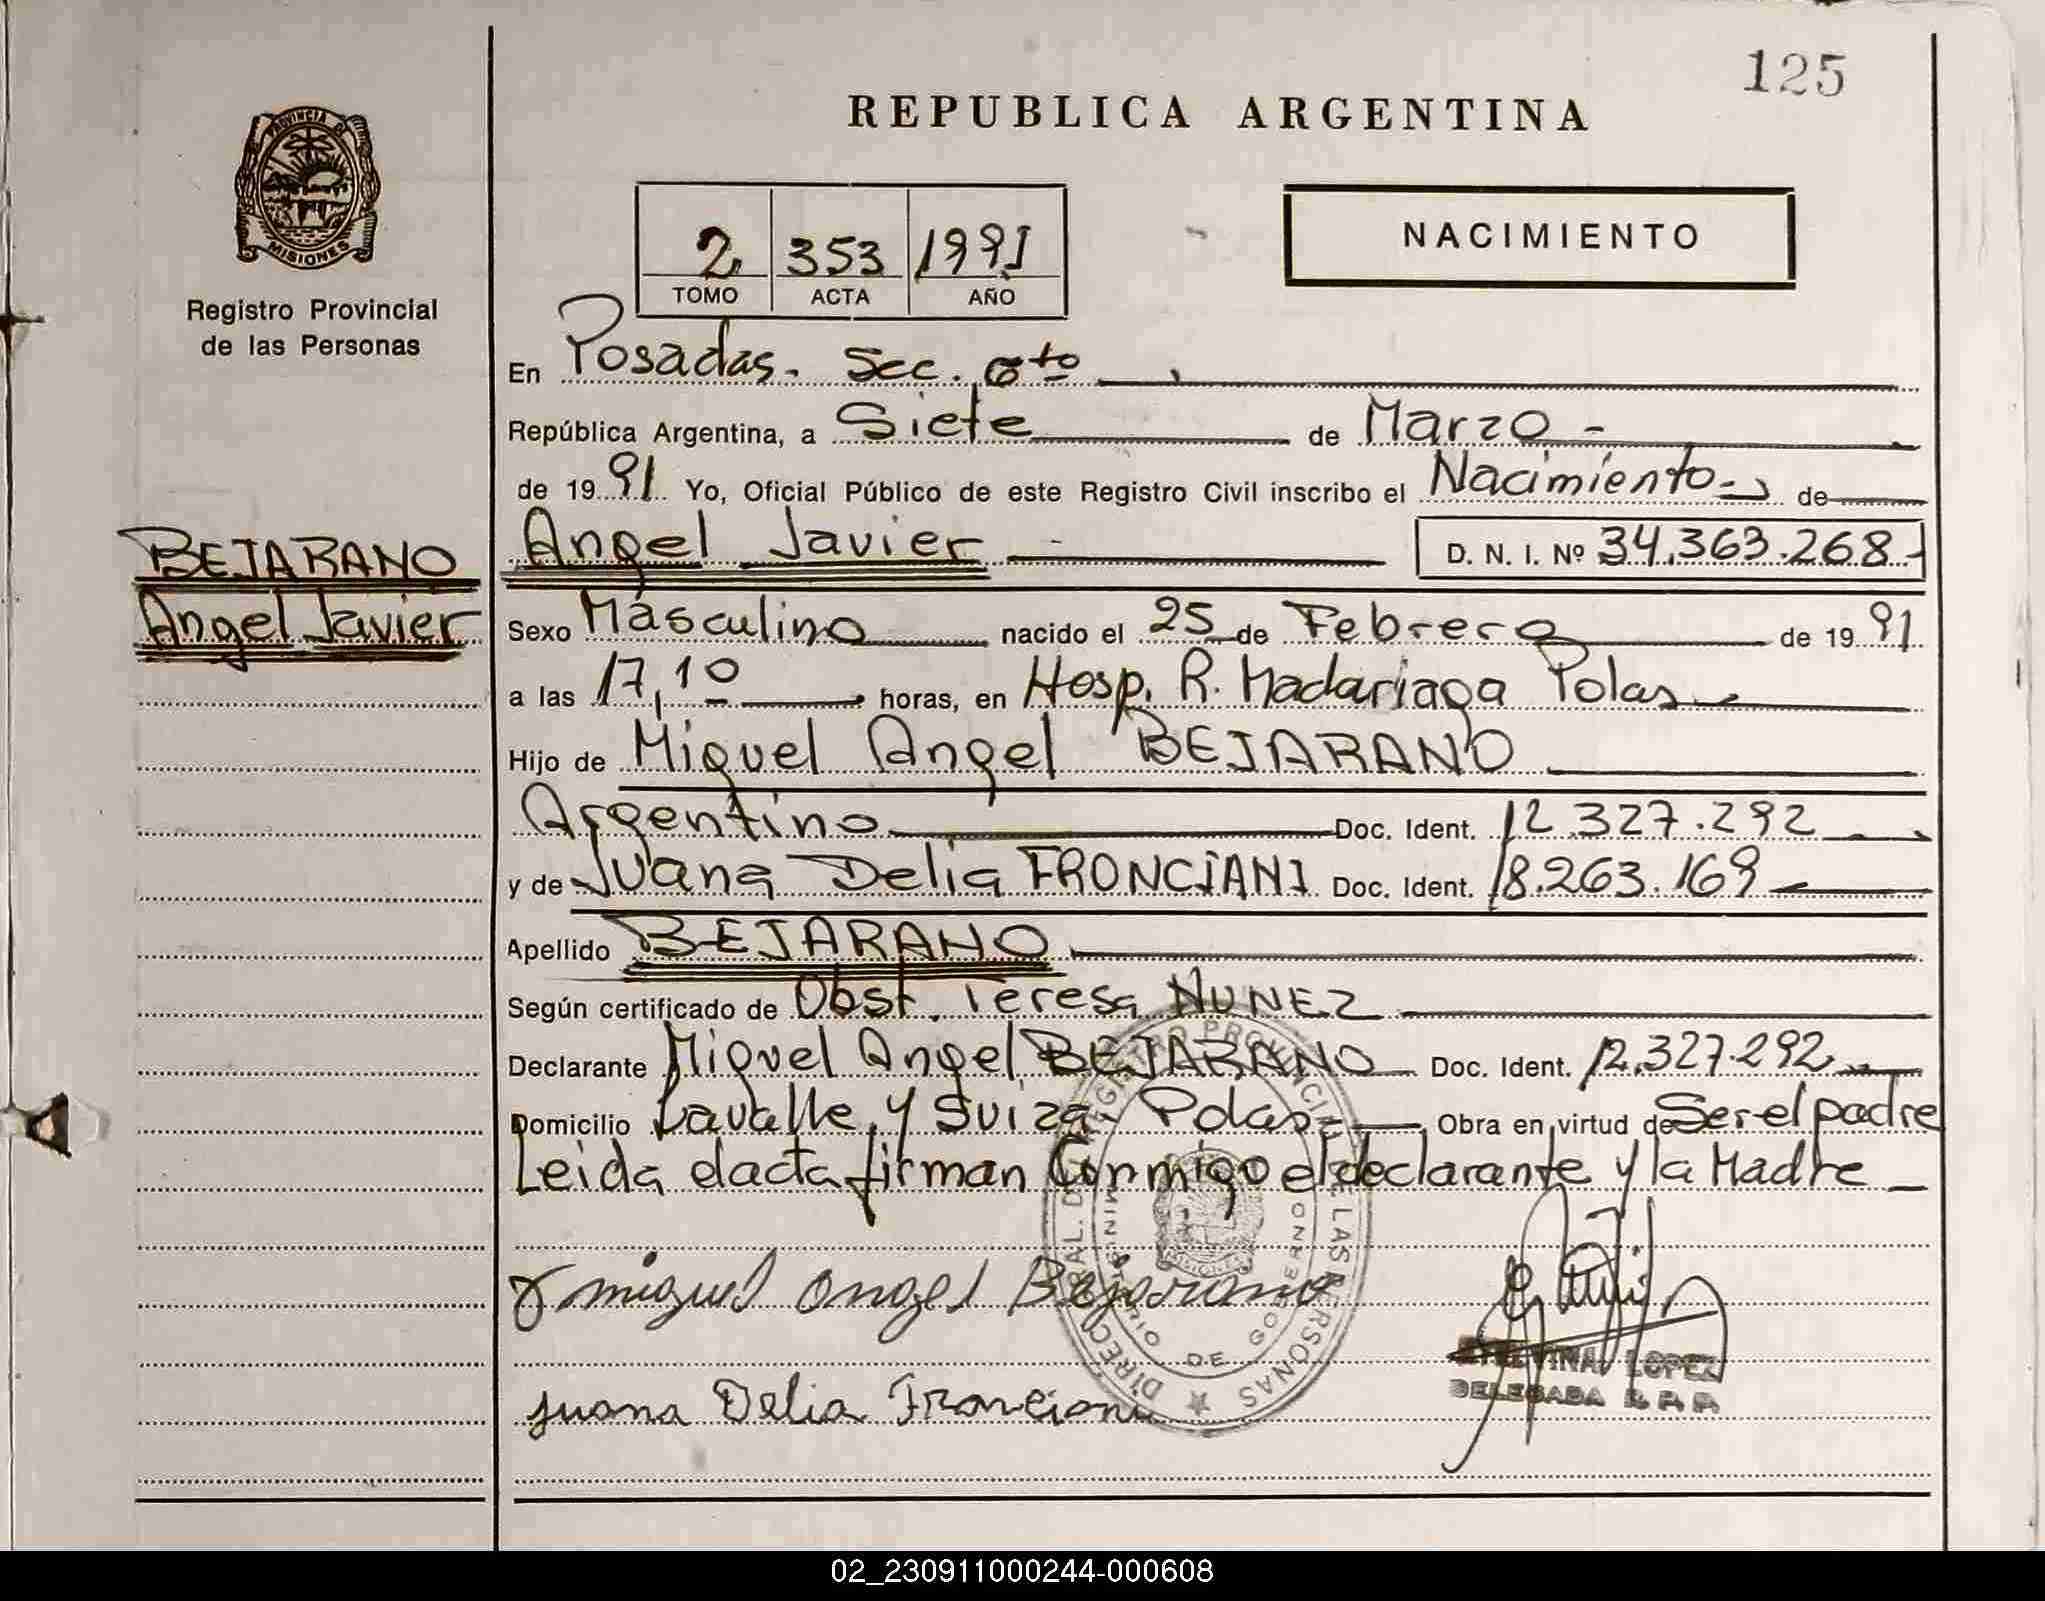 125
REPUBLICA ARGENTINA
PROVINCIA DE
MISIONES
Registro Provincial
de las Personas
2 353 1991
TOMO ACTA AÑO
NACIMIENTO
En Posadas. Sec. 6to
República Argentina, a Siete de Marzo -
de 1991 Yo, Oficial Público de este Registro Civil inscribo el Nacimiento- de
BEJARANO
Angel Javier
Angel Javier D. N. I. Nº 34.363.268-
Sexo Masculino nacido el 25 de Febrero de 1991
a las 17,10 horas, en Hosp. R. Madariaga Pdas
Hijo de Miguel Angel BEJARANO
Argentino Doc. Ident. 12.327.292
y de Juana Delia FRONCIANI Doc. Ident. 18.263.169
Apellido BEJARANO
Según certificado de Obst. Teresa NUNEZ
Declarante Miguel Angel BEJARANO Doc. Ident. 12.327.292
Domicilio Lavalle y Suiza- Pdas- Obra en virtud de Ser el padre
Leida elacta firman Conmigo eldeclarante y la Madre
miguel angel Bejarano
Juana Delia Franciani
LOPEZ
DELEGADA R.P.P.
DIRECC. GRAL. DEL REGISTRO PROVINCIAL DE LAS PERSONAS
MINISTERIO DE GOBIERNO
MISIONES
02_230911000244-000608